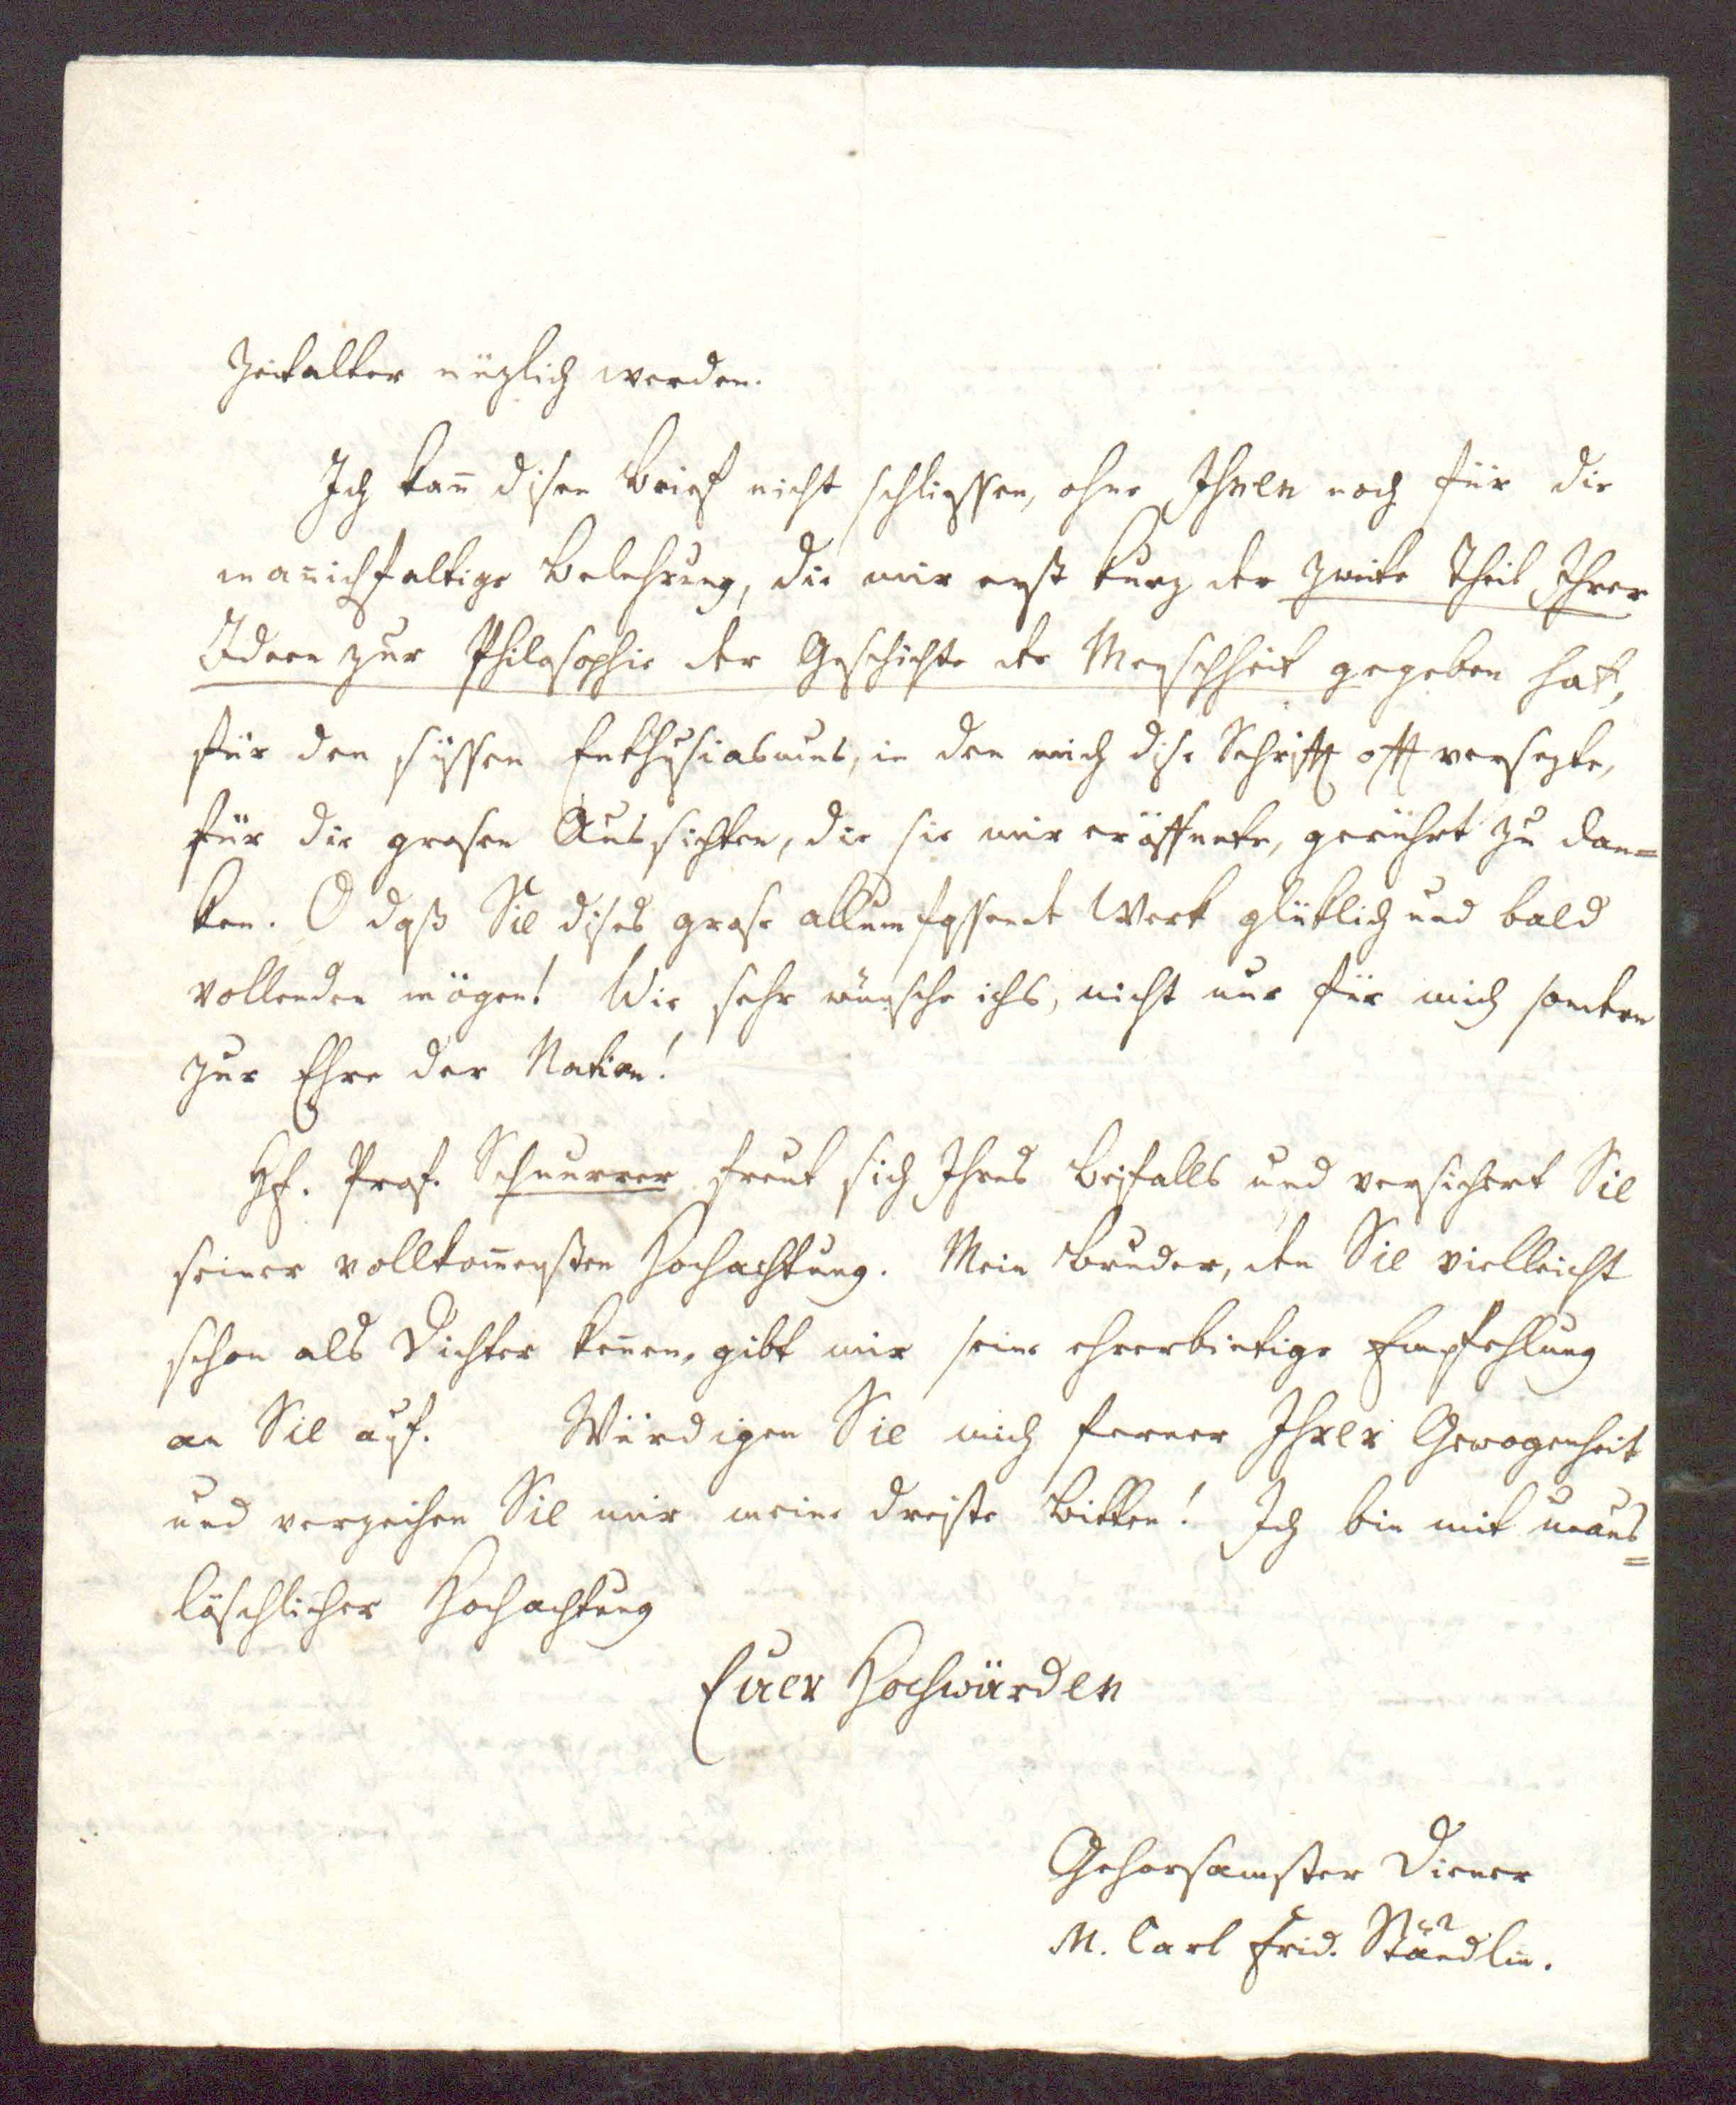 Zeitalter nüzlich werden.
Ich kan̄ disen Brief nicht schliessen, ohne Ihnen noch für die
man̄ichfaltige Belehrung, die mir erst kurz der zweite Theil Ihrer
Ideen zur Philosophie der Geschichte der Menschheit gegeben hat,
für den süssen Enthusiasmus, in den mich dise Schrifft offt versezte,
für die grosen Aussichten, die sie mir eröffnete, gerührt zu dan=
ken. O daß Sie dises grose allumfassende Werk glüklich und bald
vollenden mögen! Wie sehr wünsche ichs, nicht nur für mich sondern
zur Ehre der Nation!
Hr. Prof. Schnurrer freut sich Ihres Beifalls und versichert Sie
seiner vollkom̄ensten Hochachtung. Mein Bruder, den Sie vielleicht
schon als Dichter ken̄en, gibt mir seine ehrerbietige Empfehlung
an Sie auf. Würdigen Sie mich ferner Ihrer Gewogenheit
und verzeihen Sie mir meine dreiste Bitten! Ich bin mit unaus=
löschlicher Hochachtung
Euer Hochwürden
Gehorsamster Diener
M. Carl Frid. Stäudlin.